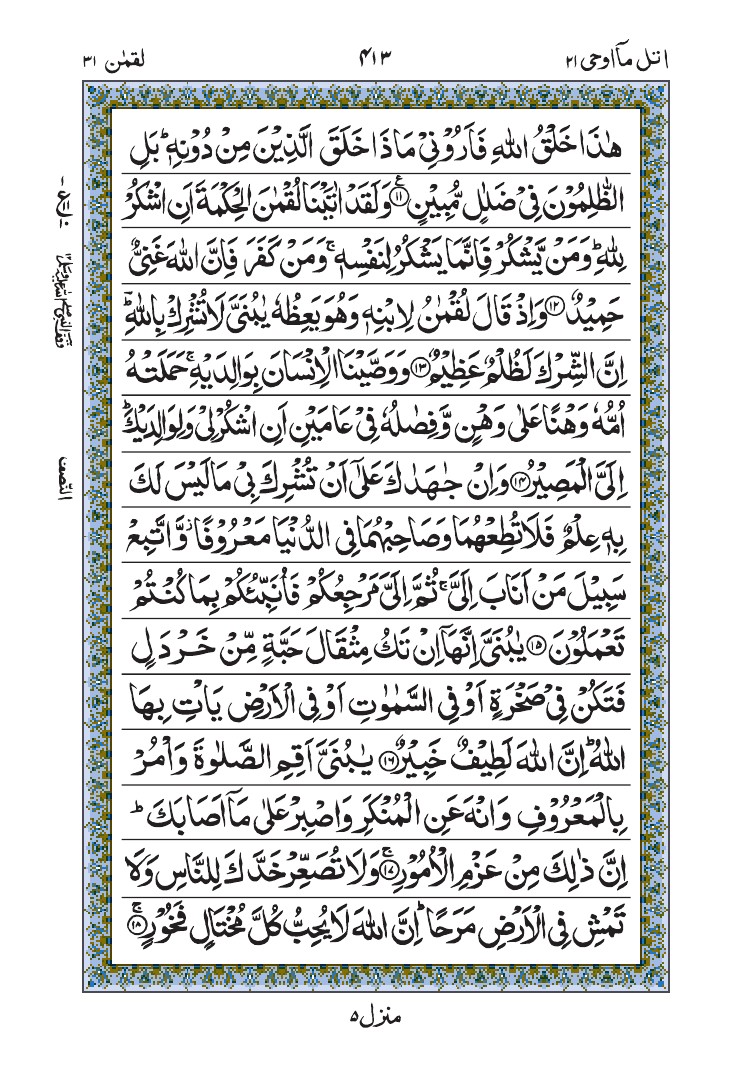 اتل مآاوحی ۲۱
۴۱۳
لقمٰن ۳۱
هٰذَا خَلْقُ اللّٰهِ فَاَرُوْنِیْ مَاذَا خَلَقَ الَّذِیْنَ مِنْ دُوْنِهٖ ؕ بَلِ
الظّٰلِمُوْنَ فِیْ ضَلٰلٍ مُّبِیْنٍ ۱۱ ع وَلَقَدْ اٰتَیْنَا لُقْمٰنَ الْحِكْمَةَ اَنِ اشْكُرْ
لِلّٰهِ ؕ وَمَنْ یَّشْكُرْ فَاِنَّمَا یَشْكُرُ لِنَفْسِهٖ ۚ وَمَنْ كَفَرَ فَاِنَّ اللّٰهَ غَنِیٌّ
حَمِیْدٌ ۱۲ وَاِذْ قَالَ لُقْمٰنُ لِابْنِهٖ وَهُوَ یَعِظُهٗ یٰبُنَیَّ لَا تُشْرِكْ بِاللّٰهِ ؔؕ
اِنَّ الشِّرْكَ لَظُلْمٌ عَظِیْمٌ ۱۳ وَوَصَّیْنَا الْاِنْسَانَ بِوَالِدَیْهِ ۚ حَمَلَتْهُ
اُمُّهٗ وَهْنًا عَلٰی وَهْنٍ وَّفِصٰلُهٗ فِیْ عَامَیْنِ اَنِ اشْكُرْ لِیْ وَلِوَالِدَیْكَ ؕ
اِلَیَّ الْمَصِیْرُ ۱۴ وَاِنْ جٰهَدٰكَ عَلٰۤی اَنْ تُشْرِكَ بِیْ مَا لَیْسَ لَكَ
بِهٖ عِلْمٌ فَلَا تُطِعْهُمَا وَصَاحِبْهُمَا فِی الدُّنْیَا مَعْرُوْفًا ؗ وَّاتَّبِعْ
سَبِیْلَ مَنْ اَنَابَ اِلَیَّ ۚ ثُمَّ اِلَیَّ مَرْجِعُكُمْ فَاُنَبِّئُكُمْ بِمَا كُنْتُمْ
تَعْمَلُوْنَ ۱۵ یٰبُنَیَّ اِنَّهَاۤ اِنْ تَكُ مِثْقَالَ حَبَّةٍ مِّنْ خَرْدَلٍ
فَتَكُنْ فِیْ صَخْرَةٍ اَوْ فِی السَّمٰوٰتِ اَوْ فِی الْاَرْضِ یَاْتِ بِهَا
اللّٰهُ ؕ اِنَّ اللّٰهَ لَطِیْفٌ خَبِیْرٌ ۱۶ یٰبُنَیَّ اَقِمِ الصَّلٰوةَ وَاْمُرْ
بِالْمَعْرُوْفِ وَانْهَ عَنِ الْمُنْكَرِ وَاصْبِرْ عَلٰی مَاۤ اَصَابَكَ ؕ
اِنَّ ذٰلِكَ مِنْ عَزْمِ الْاُمُوْرِ ۱۷ ۚ وَلَا تُصَعِّرْ خَدَّكَ لِلنَّاسِ وَلَا
تَمْشِ فِی الْاَرْضِ مَرَحًا ؕ اِنَّ اللّٰهَ لَا یُحِبُّ كُلَّ مُخْتَالٍ فَخُوْرٍ ۱۸ ۚ
النّصف
منزل ۵